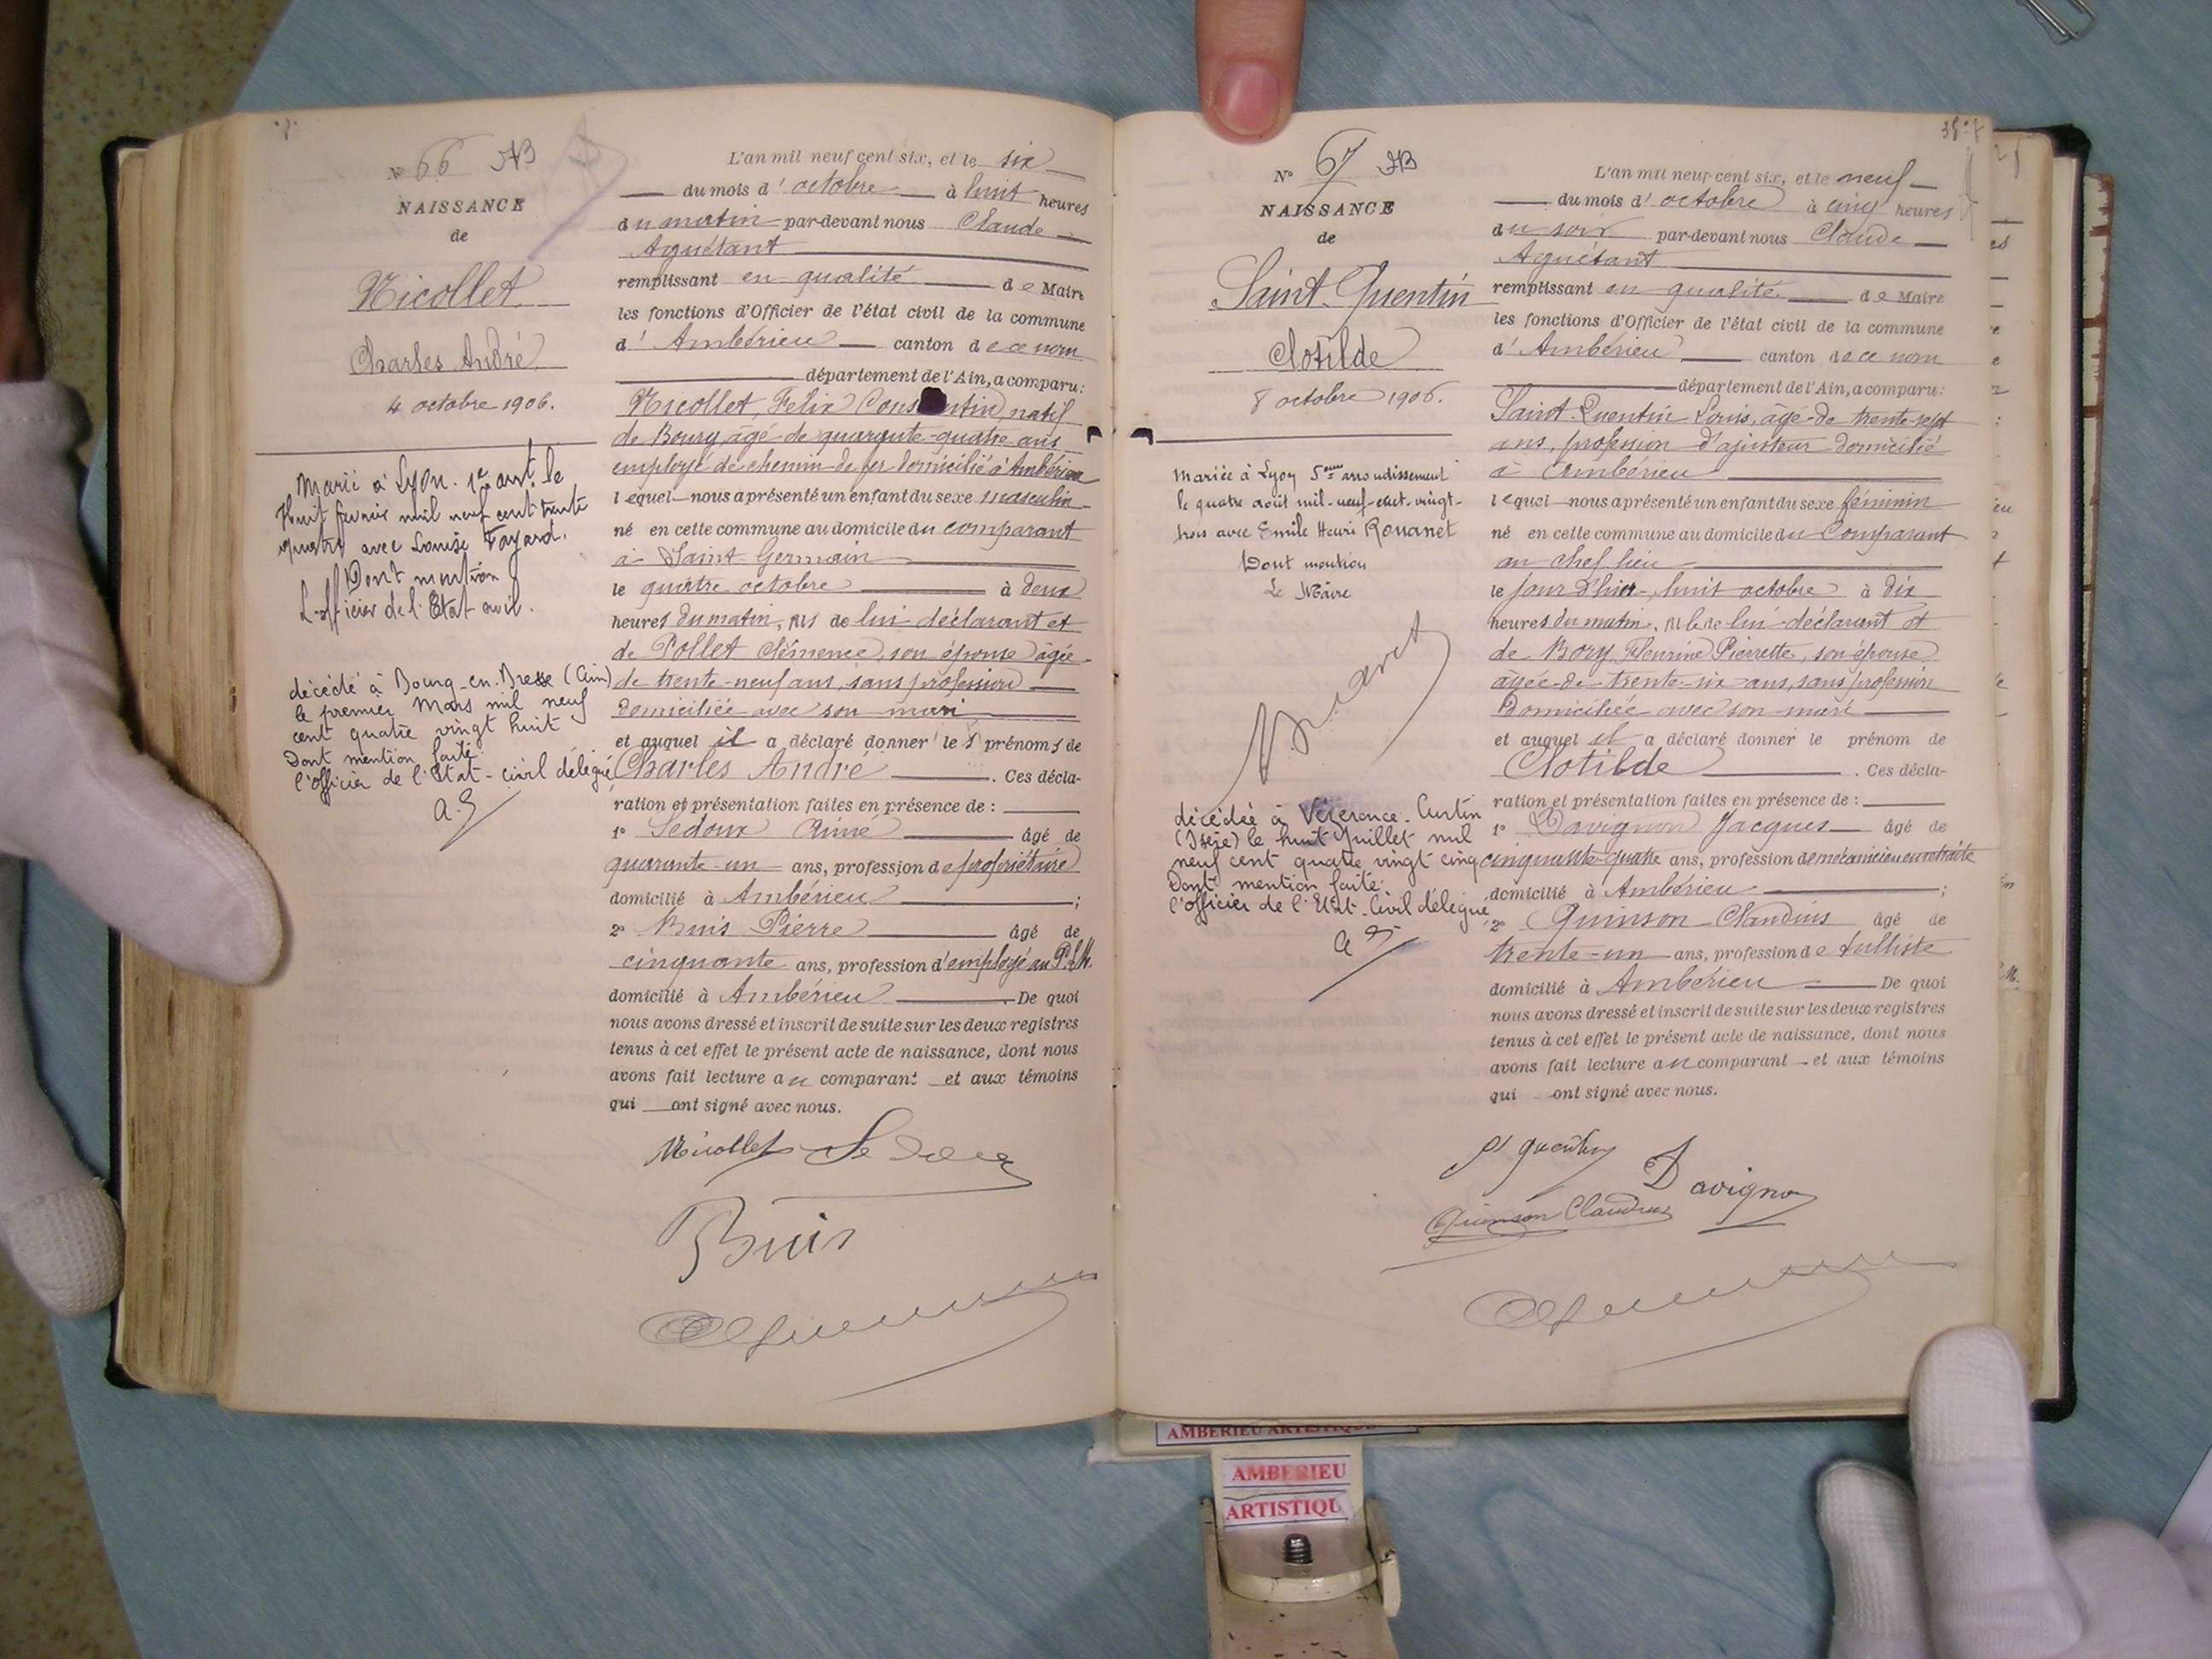 N° 66 AB
NAISSANCE
de
Nicollet
Charles André
4 octobre 1906.
Marié à Lyon. 1er arrt. le
huit février mil neuf cent trente
quatre avec Louise Fayard.
Dont mention
L'officier de l'Etat civil.
décédé à Bourg-en-Bresse (Ain)
le premier Mars mil neuf
cent quatre vingt huit
Dont mention faite.
l'officier de l'Etat-civil délégué
L'an mil neuf cent six, et le six
du mois d'octobre à huit heures
du matin par-devant nous Claude
Aguétant
remplissant en qualité de Maire
les fonctions d'Officier de l'état civil de la commune
d'Ambérieu canton de ce nom
département de l'Ain, a comparu:
Nicollet, Felix Constantin natif
de Bourg, âgé de quarante-quatre ans
employé de chemin de fer domicilié à Ambérieu
lequel nous a présenté un enfant du sexe masculin
né en cette commune au domicile du comparant
à Saint Germain
le quatre octobre à deux
heures du matin, fils de lui déclarant et
de Pollet Clémence, son épouse agée
de trente-neuf ans, sans profession
domiciliée avec son mari
et auquel il a déclaré donner les prénoms de
Charles André. Ces décla-
ration et présentation faites en présence de :
1° Sedoux Aimé âgé de
quarante-un ans, profession de propriétaire
domicilié à Ambérieu ;
2° Buis Pierre âgé de
cinquante ans, profession d'employé au P.L.M.
domicilié à Ambérieu. De quoi
nous avons dressé et inscrit de suite sur les deux registres
tenus à cet effet le présent acte de naissance, dont nous
avons fait lecture au comparant et aux témoins
qui ont signé avec nous.
Nicollet Sedoux
Buis
N° 67 AB
NAISSANCE
de
Saint-Quentin
Clotilde
8 octobre 1906.
Mariée à Lyon 5eme arrondissement
le quatre août mil-neuf-cent-vingt-
trois avec Emile Henri Rouanet
Dont mention
Le Maire
décédée à Vézeronce-Curtin
(Isère) le huit Juillet mil
neuf cent quatre vingt cinq
Dont mention faite.
l'officier de l'Etat-Civil délégué
L'an mil neuf cent six, et le neuf
du mois d'octobre à cinq heures
du soir par-devant nous Claude
Aguétant
remplissant en qualité de Maire
les fonctions d'Officier de l'état civil de la commune
d'Ambérieu canton de ce nom
département de l'Ain, a comparu:
Saint-Quentin Louis, âgé de trente-sept
ans, profession d'ajusteur domicilié
à Ambérieu
lequel nous a présenté un enfant du sexe féminin
né en cette commune au domicile du Comparant
au chef lieu
le jour d'hier, huit octobre à dix
heures du matin, fille de lui déclarant et
de Bory Fleurine Pierrette, son épouse
agée de trente-six ans, sans profession
domiciliée avec son mari
et auquel il a déclaré donner le prénom de
Clotilde. Ces décla-
ration et présentation faites en présence de :
1° Davignon Jacques âgé de
cinquante-quatre ans, profession de mécanicien en retraite
domicilié à Ambérieu ;
2° Quinson Claudius âgé de
trente-un ans, profession de tulliste
domicilié à Ambérieu De quoi
nous avons dressé et inscrit de suite sur les deux registres
tenus à cet effet le présent acte de naissance, dont nous
avons fait lecture au comparant et aux témoins
qui ont signé avec nous.
St Quentin
Davignon
Quinson Claudius
AMBERIEU ARTISTIQUE
AMBERIEU
ARTISTIQU